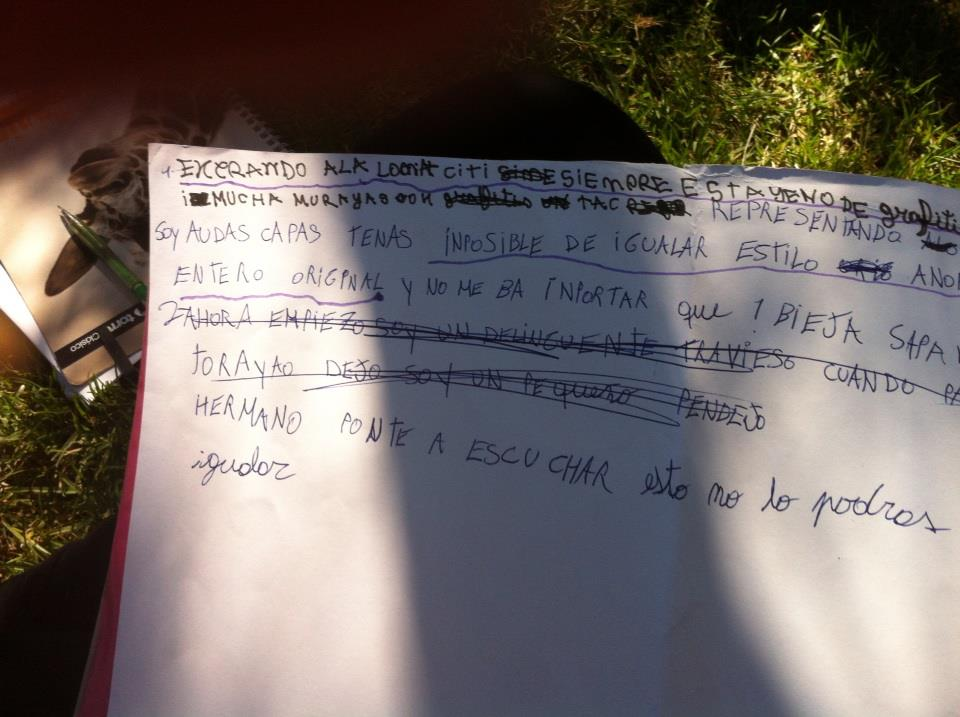 1. EXCERANDO ALA CITI SIEMPRE ESTA YENO DE grafiti
MUCHA MURAYAS CON TAC REPRESENTANDO
SOY AUDAS CAPAS TENAS INPOSIBLE DE IGUALAR ESTILO
ENTERO ORIGINAL Y NO ME BA INPORTAR que 1 BIEJA SAPA
2 AHORA EMPIEZO SOY UN DELINGUENTE TRAVIESO CUANDO
DEJO SOY UN PEqueño PENDEJO
HERMANO PONTE A ESCUCHAR esto no lo podras
igualar
torn
Clásico